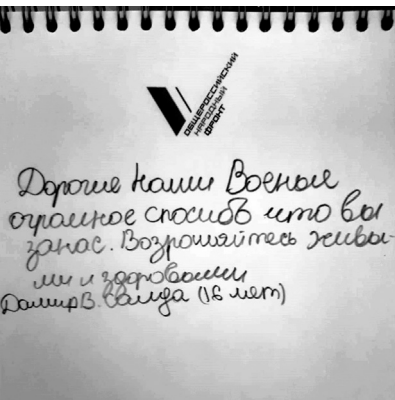 ОБЩЕРОССИЙСКИЙ
НАРОДНЫЙ
ФРОНТ
Дорогие наши Военые
огромное спосибъ что вы
занас. Возрошяйтесь живы-
ми и здоровыми
Дамир В. (16 лет)